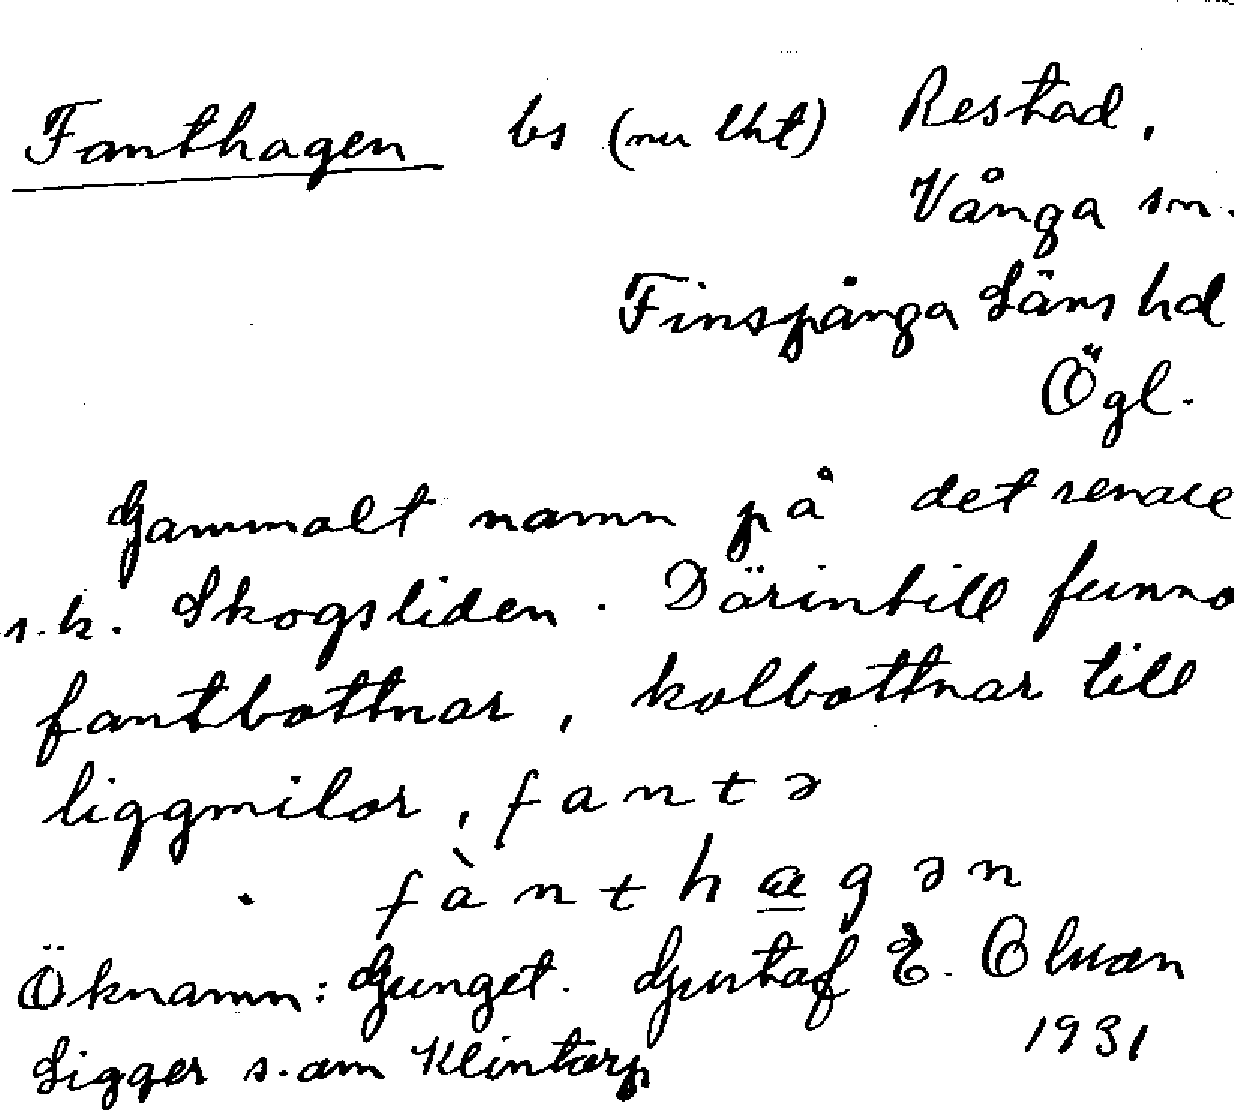 Fanthagen bs (nu lht) Restad,
Vånga sn.
Finspånga Läns hd
Ögl.
Gammalt namn på det senare
s.k. Skogsliden. Därintill funno
fantbottnar, kolbottnar till
liggmilor, fantə
fànthagən
Öknamn: Gunget. Gustaf E. Olson
Ligger s. om Klintorp 1931